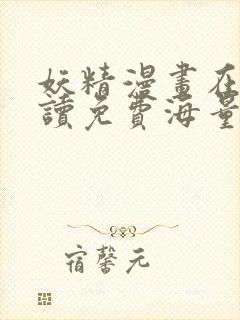 妖精漫畫在
讀免費海量
宿馨元